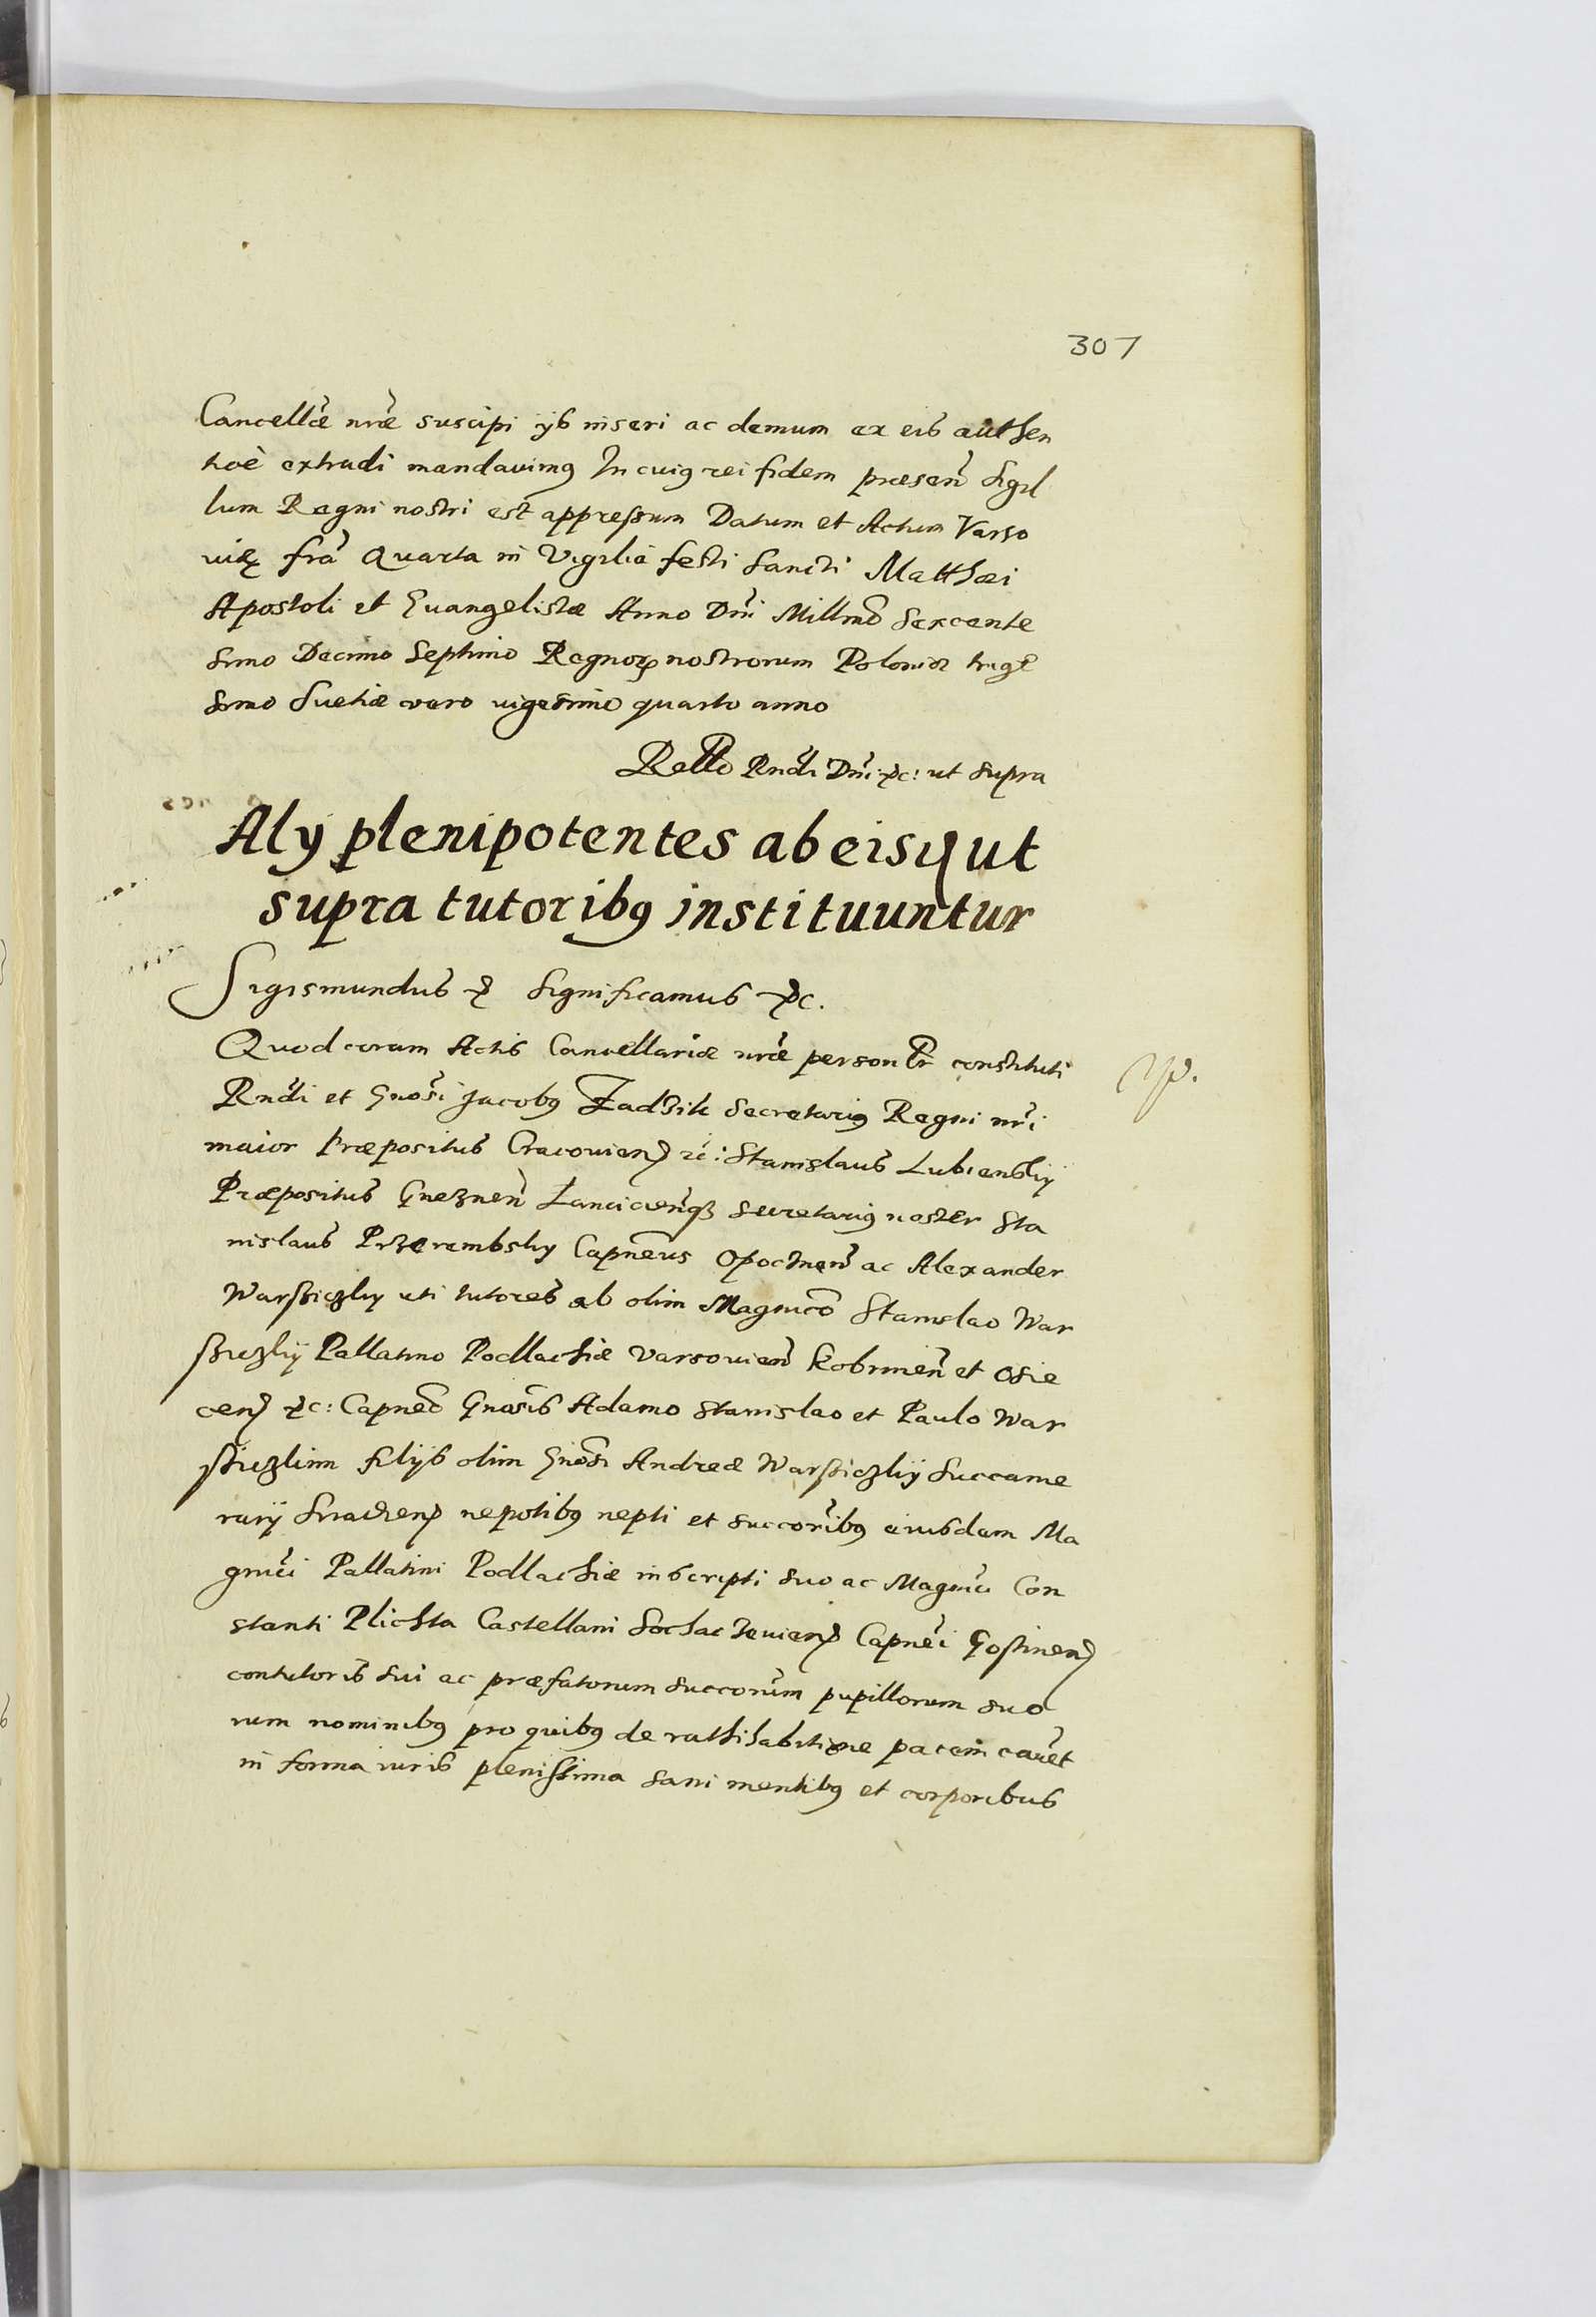 307
Cancellæ nræ suscipi ijs inseri ac demum ex eis authen
tice extradi mandavimus In cuius rei fidem præsen Sigil
lum Regni nostri est appressum Datum et Actum Varso
viæ fra Quarta in Vigilia festi Sancti Matthæi
Apostoli et Evangelistæ Anno Dni Millmo Sexcente
simo Decimo Septimo Regnor nostrorum Poloniæ trige
simo Suetiæ vero vigesimo quarto anno
Rndi Dni etc: ut supra
Aly plenipotentes ab eisq ut
supra tutoribus instituuntur
Sigismundus etc Significamus etc.
Quod coram Actis Cancellariæ nræ personlr constituti
Rndi et Gnosi Jacobus Zadzik Secretarius Regni nri
maior Præpositus Cracovien etc: Stanislaus Lubienskij
Præpositus Gneznen Lancicienq secretarius noster Sta
nislaus Przerembsky Capneus Opocznen ac Alexander
Warszicky uti tutores ab olim Magnico Stanislao War
szickij Pallatino Podlachiæ Varsovien Kobrinen et Osie
cen etc: Capneo Gnosis Adamo Stanislao et Paulo War
szickim filijs olim Gnosi Andreæ Warszickij Succame
rarij Siradien nepotibus nepti et succoribus eiusdem Ma
gnici Pallatini Podlachiæ inscripti suo ac Magnici Con
stanti Plichta Castellani Sochaczevien Capnei Gostinen
contutoris sui ac præfatorum succorum pupillorum suo
rum nominibus pro quibus de rathihabitione pacem cavet
in forma iuris plenissima sani mentibus et corporibus